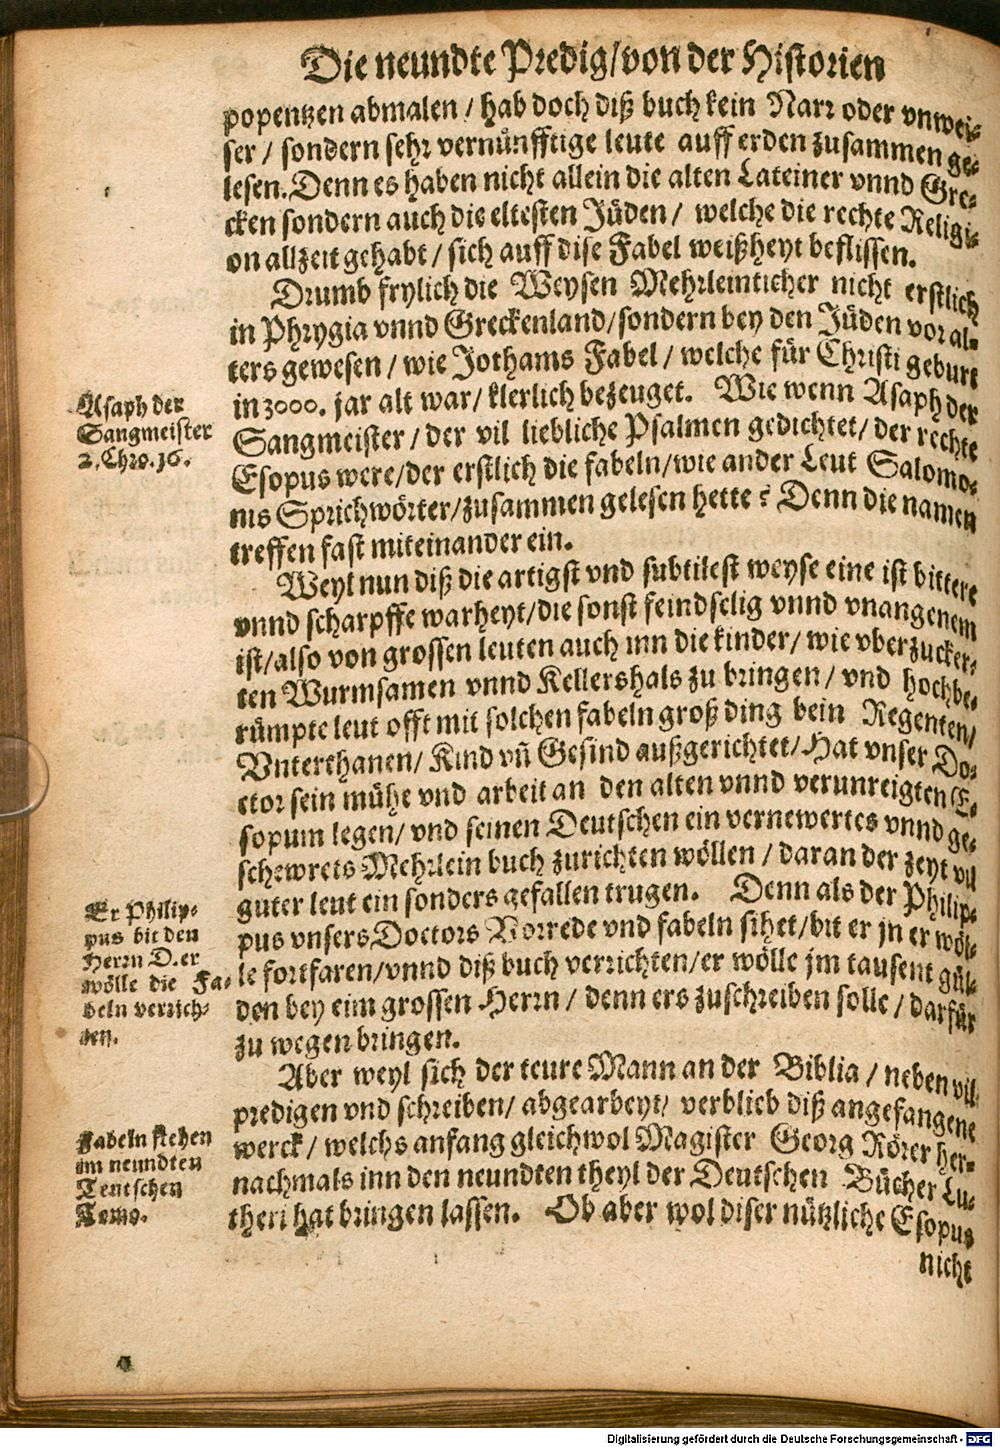 Die neundte Predig/von der Historien
popentzen abmalen / hab doch diß buch kein Narr oder vnwei-
ser / sondern sehr vernünfftige leute auff erden zusammen ge-
lesen. Denn es haben nicht allein die alten Lateiner vnnd Gre-
cken sondern auch die eltesten Jüden / welche die rechte Religi-
on allzeit gehabt / sich auff dise Fabel weißheyt beflissen.
Drumb frylich die Weysen Mehrleinticher nicht erstlich
in Phrygia vnnd Greckenland/sondern bey den Jüden vor al-
ters gewesen / wie Jothams Fabel / welche für Christi geburt
in 3000. jar alt war/ klerlich bezeuget. Wie wenn Asaph der
Sangmeister / der vil liebliche Psalmen gedichtet/ der rechte
Esopus were/der erstlich die fabeln/wie ander Leut Salomo-
nis Sprichwörter/zusammen gelesen hette? Denn die namen
treffen fast miteinander ein.
Asaph der
Sangmeister
2. Chro. 16.
Weyl nun diß die artigst vnd subtilest weyse eine ist bittere
vnnd scharpffe warheyt/die sonst feindselig vnnd vnangenem
ist/also von grossen leuten auch inn die kinder/ wie vberzucker-
ten Wurmsamen vnnd Kellershals zu bringen / vnd hochbe-
rümpte leut offt mit solchen fabeln groß ding bein Regenten/
Vnterthanen/ Kind vñ Gesind außgerichtet/Hat vnser Do-
ctor sein mühe vnd arbeit an den alten vnnd verunreigten E-
sopum legen/ vnd seinen Deutschen ein vernewertes vnnd ge-
schewrets Mehrlein buch zurichten wöllen / daran der zeyt vil
guter leut ein sonders gefallen trugen. Denn als der Philip-
pus vnsers Doctors Vorrede vnd fabeln sihet/bit er jn er wöl-
le fortfaren/vnnd diß buch verrichten/er wölle jm tausent gül-
den bey eim grossen Herrn / denn ers zuschreiben solle / darfür
zu wegen bringen.
Er Philip-
pus bit den
Herrn D. er
wölle die Fa-
beln verrich-
ten.
Aber weyl sich der teure Mann an der Biblia / neben vil
predigen vnd schreiben/ abgearbeyt/ verblieb diß angefangene
werck / welchs anfang gleichwol Magister Georg Rörer her-
nachmals inn den neundten theyl der Deutschen Bücher Lu-
theri hat bringen lassen. Ob aber wol diser nützliche Esopus
Fabeln stehen
im neundten
Teutschen
Tomo.
nicht
Digitalisierung gefördert durch die Deutsche Forschungsgemeinschaft - DFG